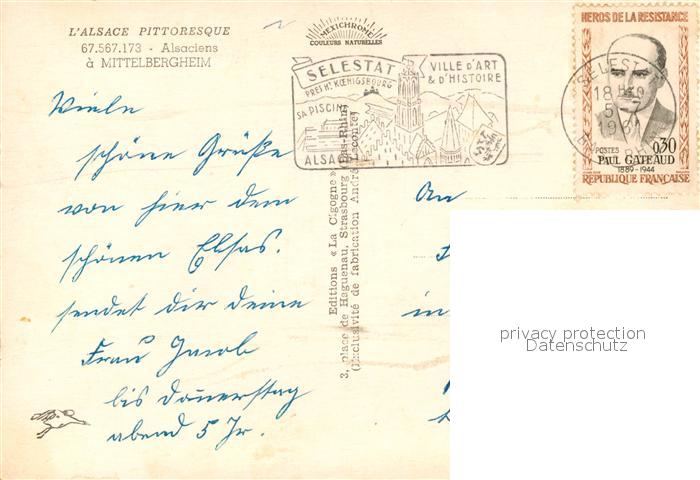 L'ALSACE PITTORESQUE
67.567.173 - Alsaciens
à MITTELBERGHEIM
MEXICHROME
COULEURS NATURELLES
SELESTAT
PRES Ht. KŒNIGSBOURG
SA PISCINE
ALSACE
VILLE D'ART
& D'HISTOIRE
SELESTAT
18H
5
1961
HEROS DE LA RESISTANCE
POSTES
0,30
PAUL GATEAUD
1889-1944
REPUBLIQUE FRANÇAISE
Viele
schöne Grüße
von hier dem
schönen Elsas.
sendet dir deine
Frau Jacob
bis Donnerstag
abend 5 Jr.
Editions « La Cigogne »
3, place de Haguenau, Strasbourg (Bas-Rhin)
(Exclusivité de fabrication André Leconte)
An
in
privacy protection
Datenschutz